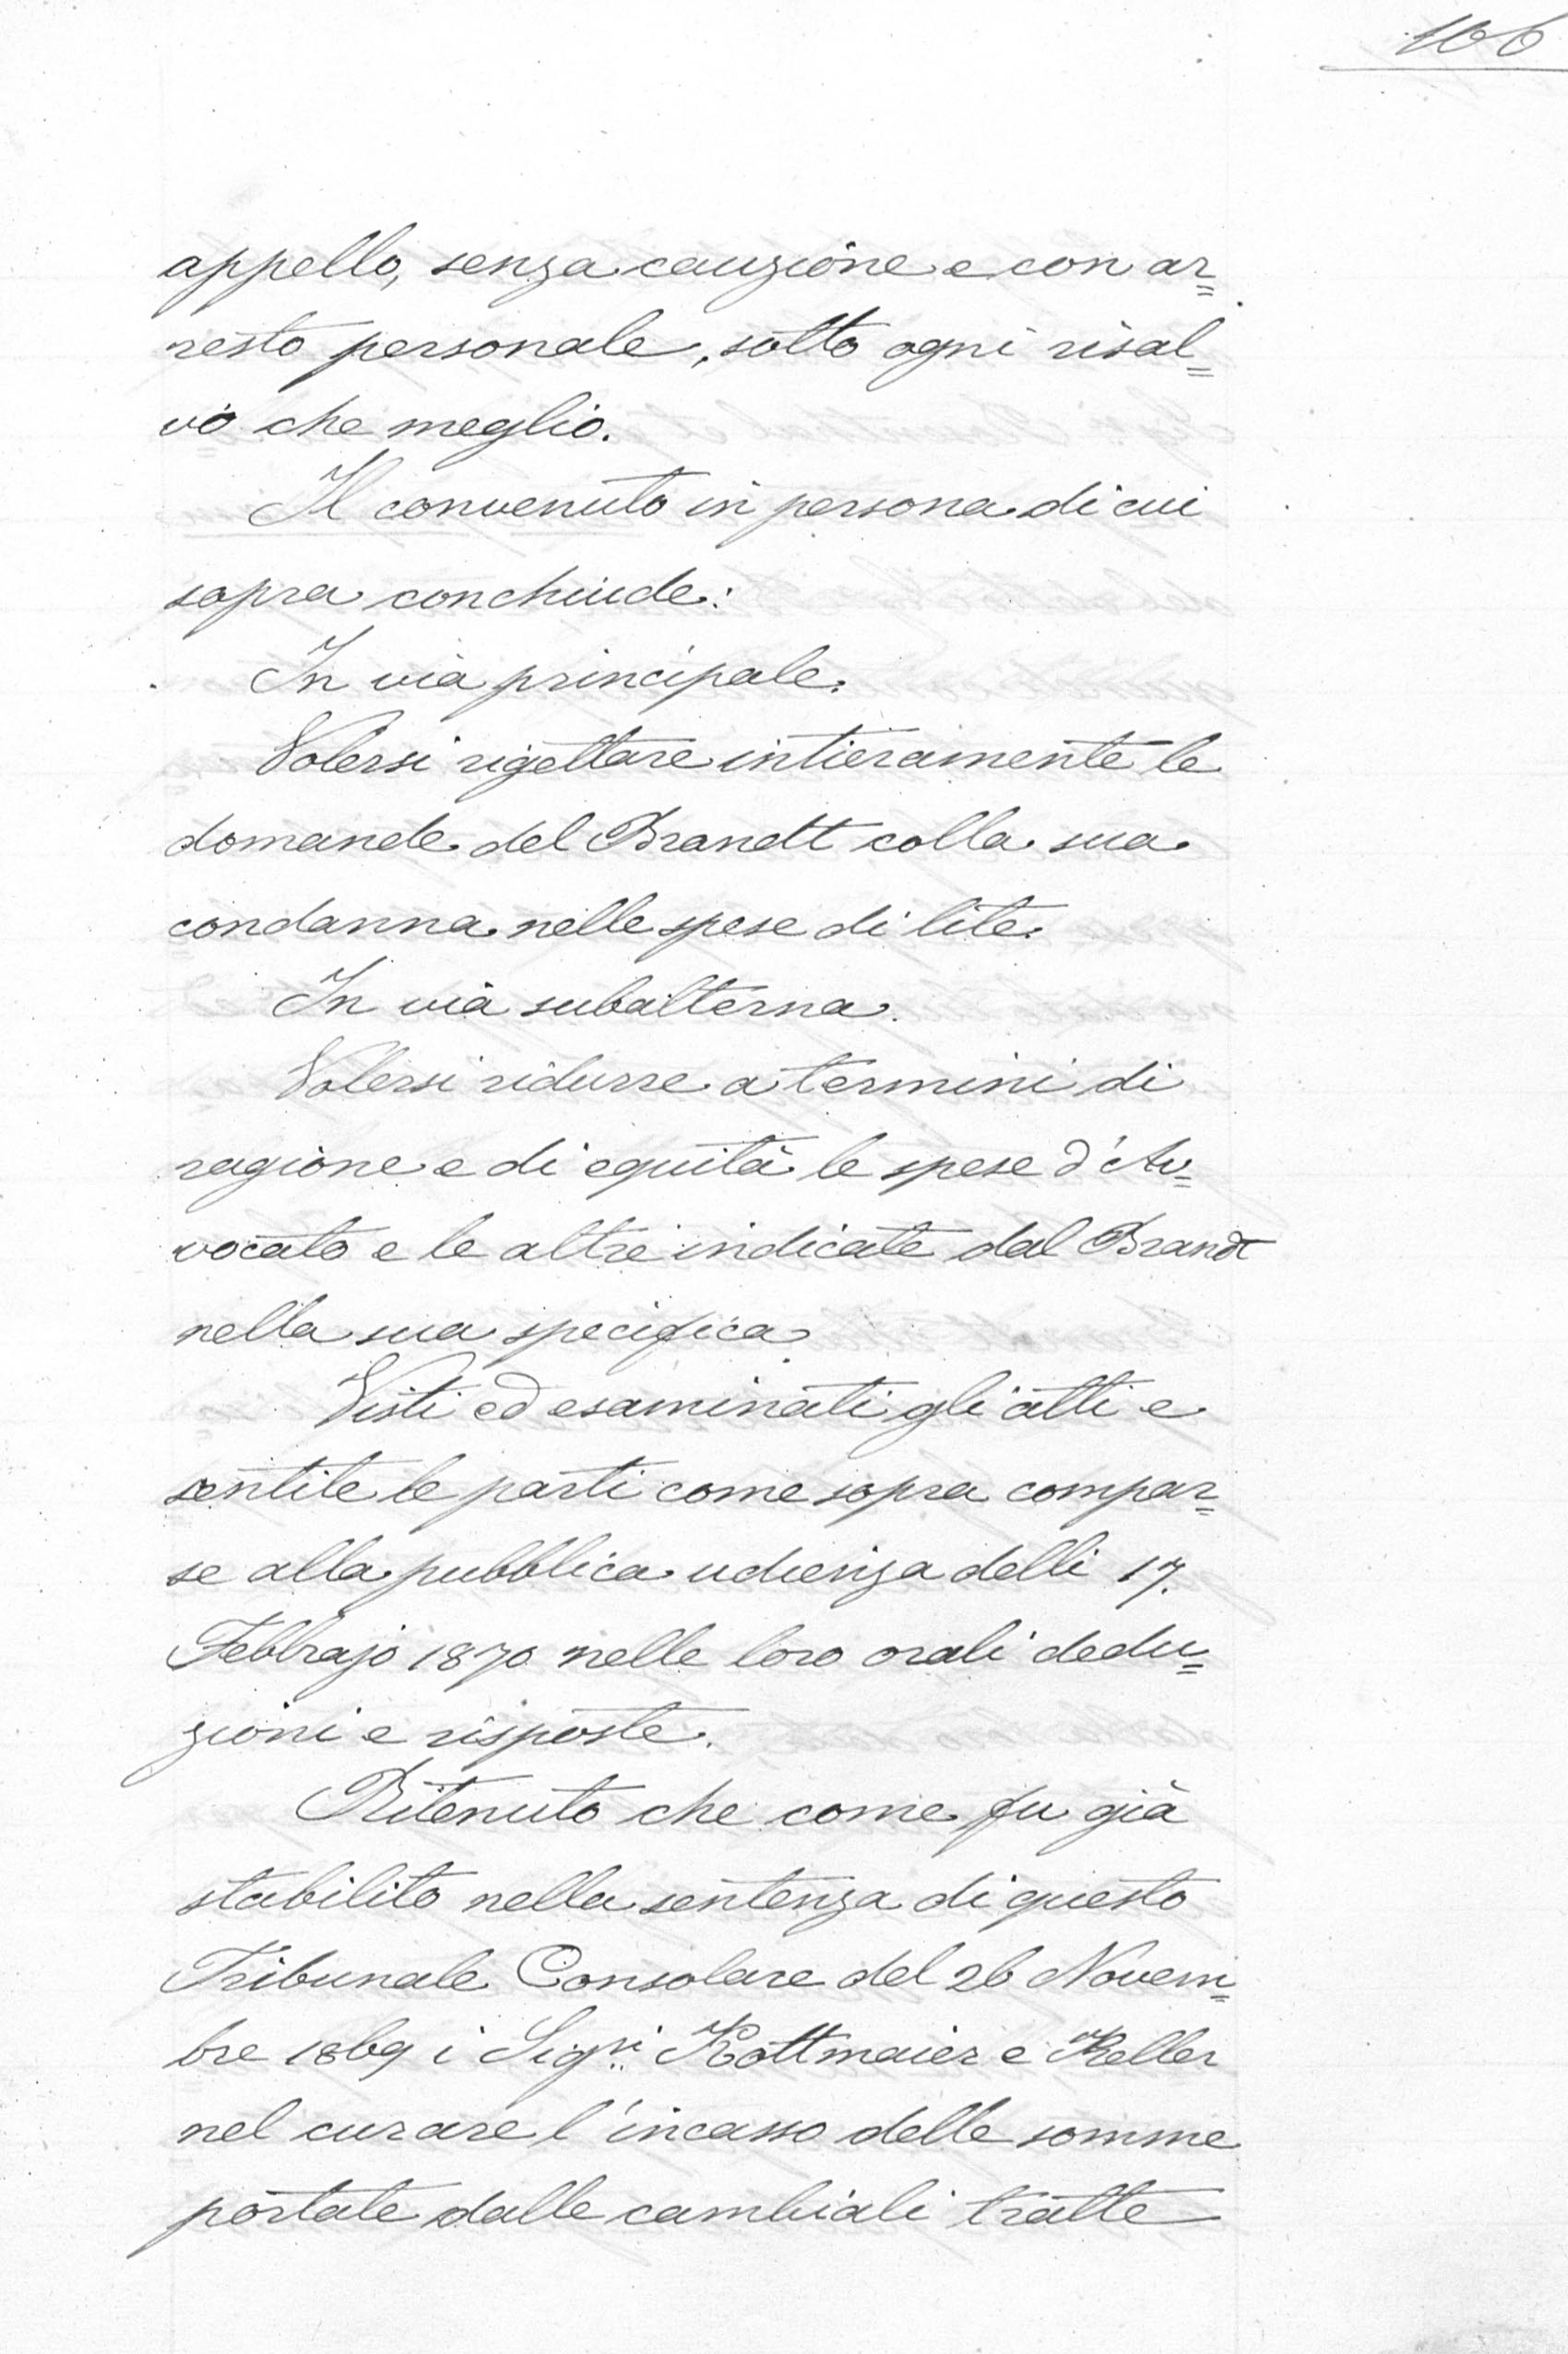 106
appello, senza cauzione e con ar=
resto personale, sotto ogni risal=
vo che meglio.
Il convenuto in persona di cui
sopra conchiude:
In via principale.
Volersi rigettare intieramente le
domande del Brandt colla sua
condanna nelle spese di lite.
In via subalterna.
Volersi ridurre a termini di
ragione e di equità le spese d'Av=
vocato e le altre indicate dal Brandt
nella sua specifica.
Visti ed esaminati gli atti e
sentite le parti come sopra compar=
se alla pubblica udienza delli 17.
Febbrajo 1870 nelle loro orali dedu=
zioni e risposte.
Ritenuto che come fu già
stabilito nella sentenza di questo
Tribunale Consolare del 26 Novem=
bre 1869 i Sigri Kottmaier e Keller
nel curare l'incasso delle somme
portate dalle cambiali tratte